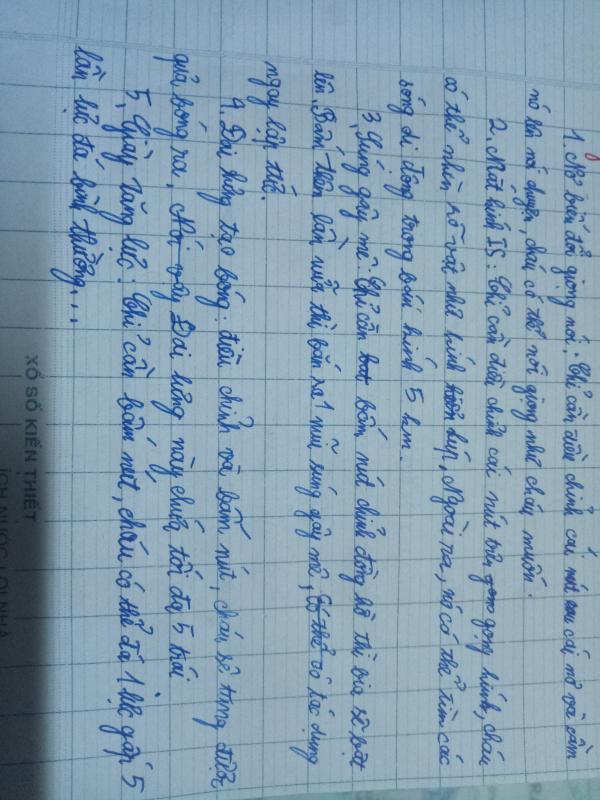 1. Nơ biến đổi giọng nói: Chỉ cần điều chỉnh cái nút sau cái nơ và cầm
nó lên nói chuyện, cháu có thể nói giọng như cháu muốn.
2. Mắt kính IS: Chỉ cần điều chỉnh cái nút trên gọng kính, cháu
có thể nhìn rõ vật như kính lúp, Ngoài ra, nó có thể tìm các
sóng di động trong bán kính 5 km.
3, Súng gây mê: Chỉ cần bấm nút chỉnh đồng hồ thì bia sẽ bật
lên. Bấm thêm lần nữa thì bắn ra 1 mũi súng gây mê, có tác dụng
ngay lập tức.
4. Đai lưng tạo bóng: điều chỉnh và bấm nút, cháu sẽ tung được
quả bóng ra, Đai lưng này chứa tối đa 5 trái
5, Giày tăng lực: Chỉ cần bấm nút, cháu có thể đá 1 lực gấp 5
lần lúc đá bình thường...
XỔ SỐ KIẾN THIẾT
ÍCH NƯỚC LỢI NHÀ